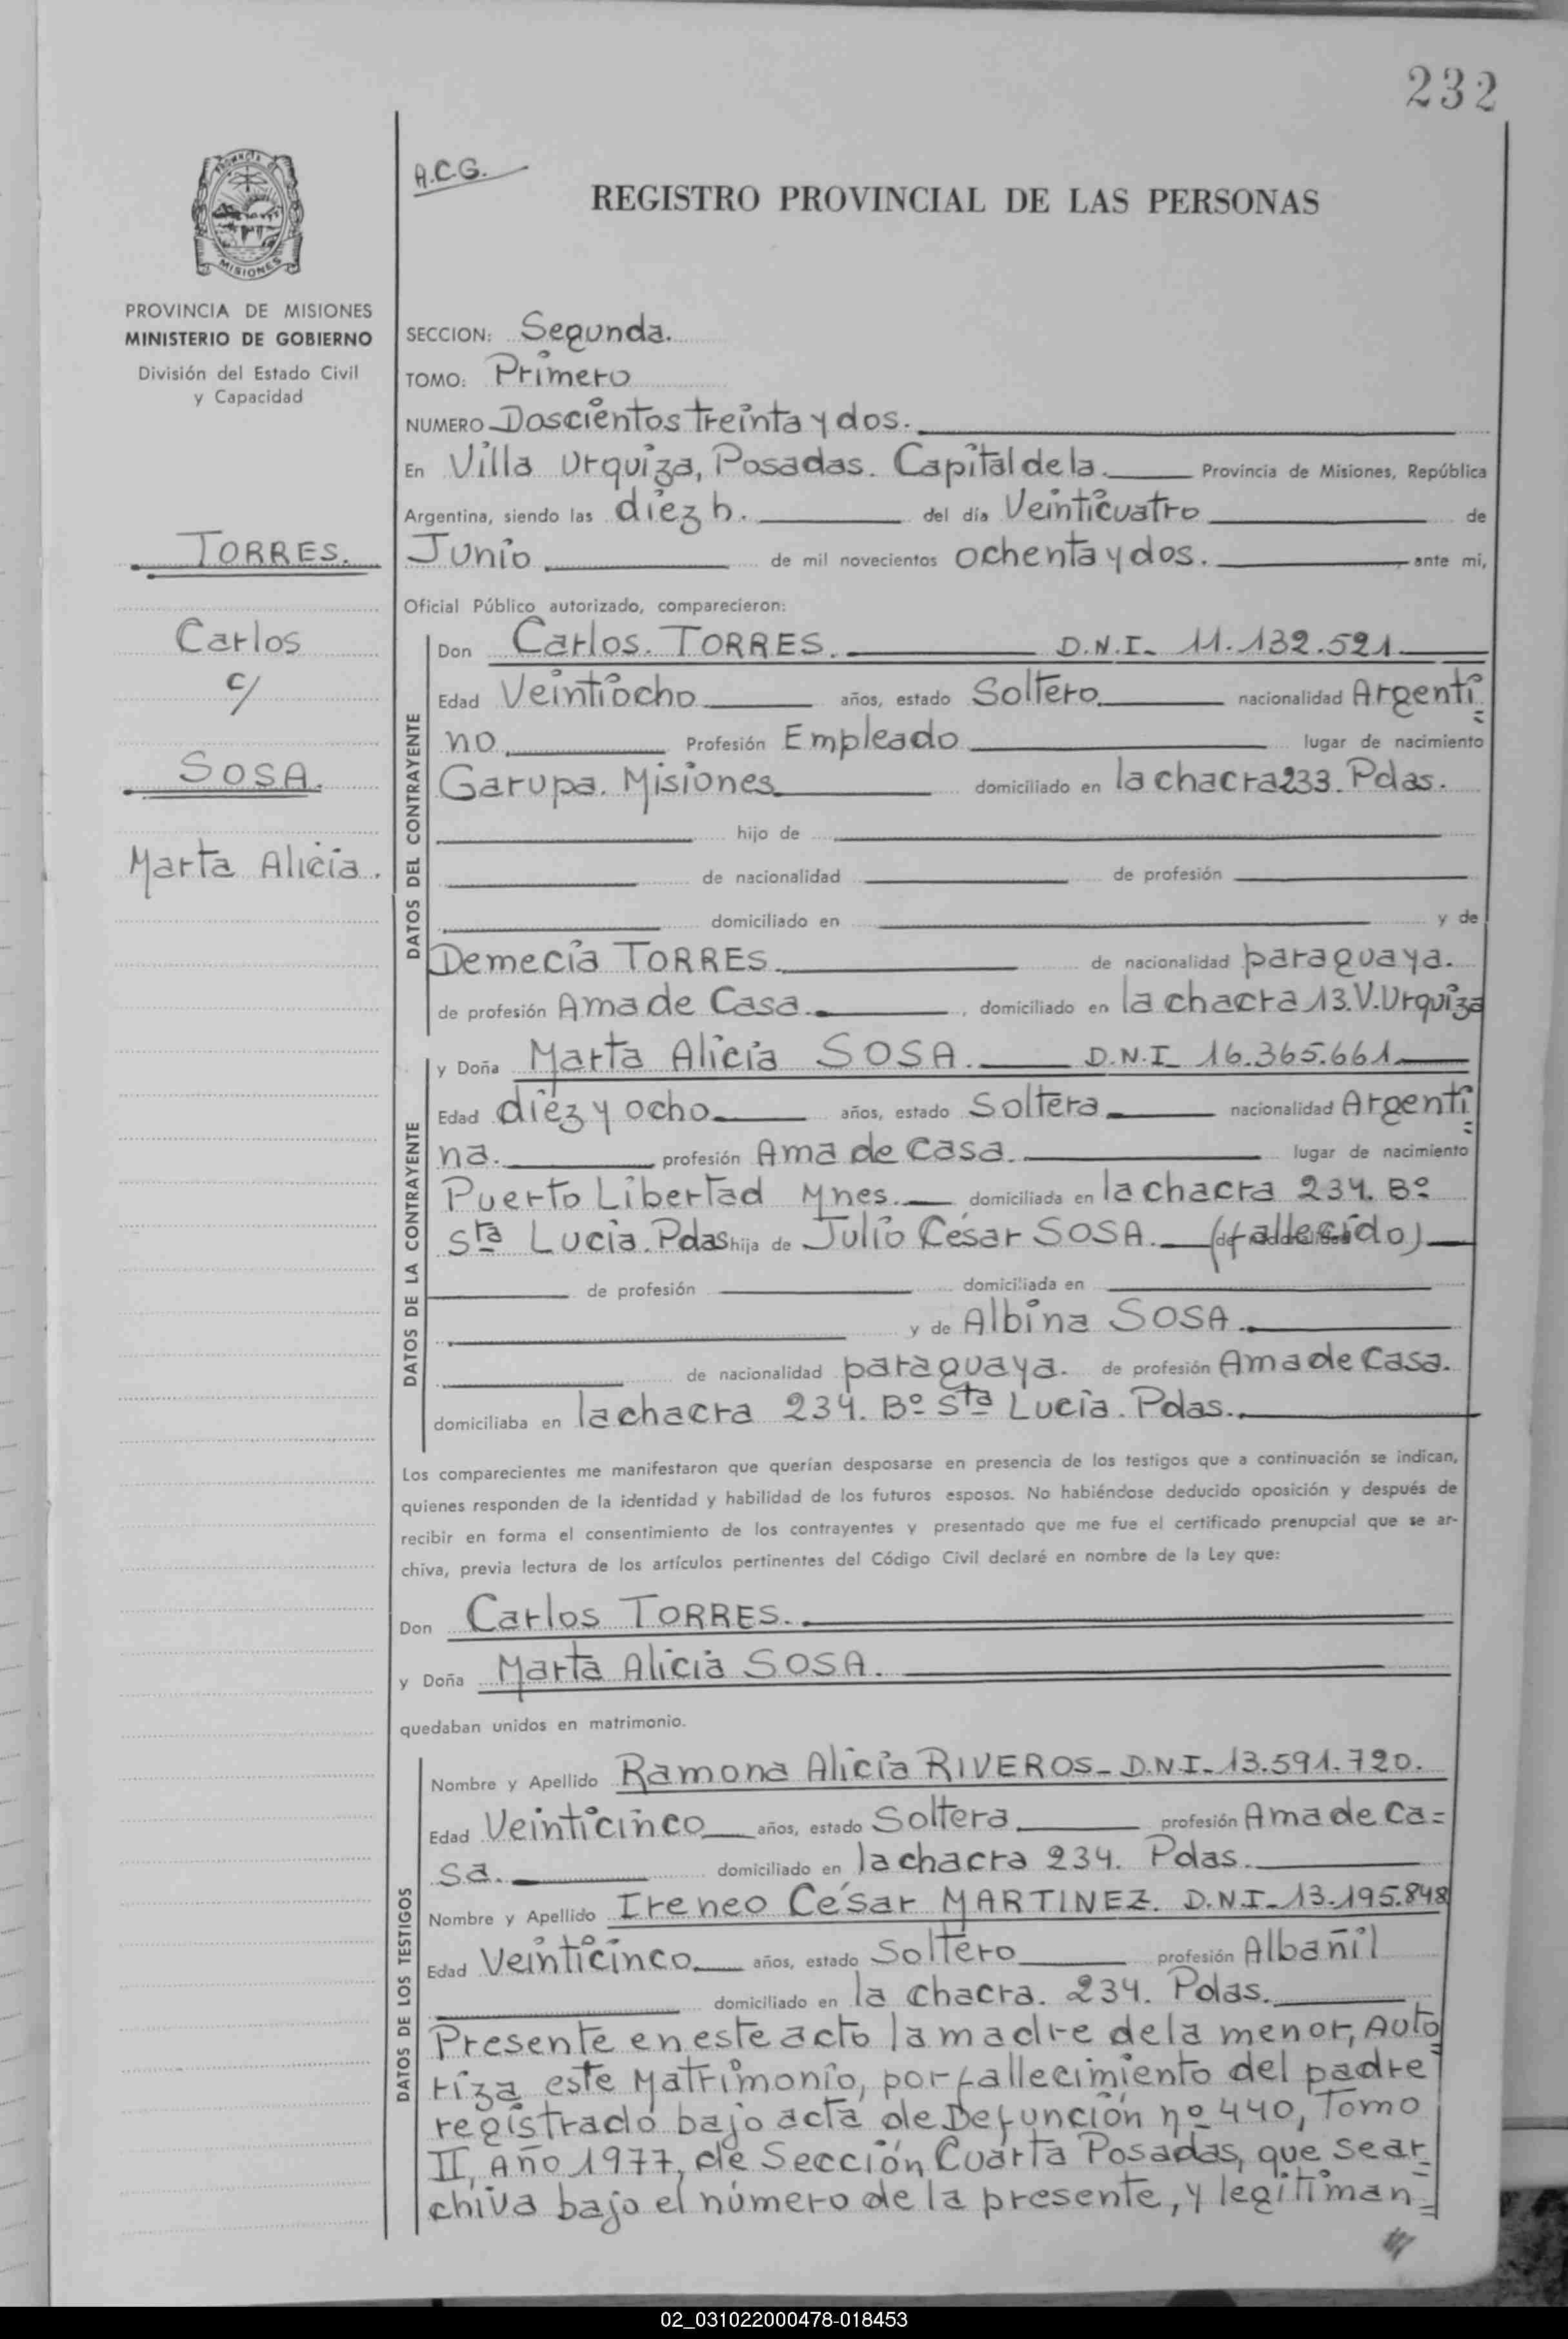 232
A.C.G.
REGISTRO PROVINCIAL DE LAS PERSONAS
PROVINCIA DE
MISIONES
PROVINCIA DE MISIONES
MINISTERIO DE GOBIERNO
División del Estado Civil
y Capacidad
TORRES.
Carlos
c/
SOSA.
Marta Alicia.
SECCION: Segunda.
TOMO: Primero
NUMERO Doscientos treinta y dos.
En Villa Urquiza, Posadas. Capital de la. Provincia de Misiones, República
Argentina, siendo las diez h. del día Veinticuatro de
Junio de mil novecientos ochenta y dos. ante mi,
Oficial Público autorizado, comparecieron:
DATOS DEL CONTRAYENTE
Don Carlos. TORRES. D.N.I. 11.132.521.
Edad Veintiocho años, estado Soltero. nacionalidad Argenti=
no. Profesión Empleado lugar de nacimiento
Garupa. Misiones domiciliado en la chacra 233. Pdas.
hijo de
de nacionalidad de profesión
domiciliado en y de
Demecia TORRES. de nacionalidad paraguaya.
de profesión Ama de Casa. , domiciliado en la chacra 13. V. Urquiza
DATOS DE LA CONTRAYENTE
y Doña Marta Alicia SOSA. D.N.I. 16.365.661.
Edad diez y ocho años, estado Soltera nacionalidad Argenti=
na. profesión Ama de Casa. lugar de nacimiento
Puerto Libertad Mnes. domiciliada en la chacra 234. Bº
Sta Lucia. Pdas hija de Julio César SOSA. (fallecido)
de profesión domiciliada en
y de Albina SOSA.
de nacionalidad paraguaya. de profesión Ama de Casa.
domiciliaba en la chacra 234. Bº Sta Lucia. Pdas.
Los comparecientes me manifestaron que querían desposarse en presencia de los testigos que a continuación se indican,
quienes responden de la identidad y habilidad de los futuros esposos. No habiéndose deducido oposición y después de
recibir en forma el consentimiento de los contrayentes y presentado que me fue el certificado prenupcial que se ar-
chiva, previa lectura de los artículos pertinentes del Código Civil declaré en nombre de la Ley que:
Don Carlos TORRES.
y Doña Marta Alicia SOSA.
quedaban unidos en matrimonio.
DATOS DE LOS TESTIGOS
Nombre y Apellido Ramona Alicia RIVEROS- D.N.I- 13.591.720.
Edad Veinticinco años, estado Soltera profesión Ama de Ca=
sa. domiciliado en la chacra 234. Pdas.
Nombre y Apellido Ireneo César MARTINEZ. D.N.I- 13.195.848
Edad Veinticinco años, estado Soltero profesión Albañil
domiciliado en la chacra. 234. Pdas.
Presente en este acto la madre de la menor, Auto=
riza este Matrimonio, por fallecimiento del padre
registrado bajo acta de Defunción nº 440, Tomo
II, Año 1977, de Sección Cuarta Posadas, que se ar=
chiva bajo el número de la presente, y legitiman=
02_031022000478-018453